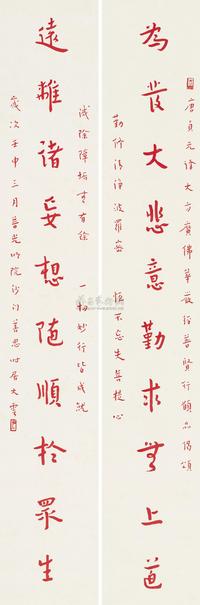 唐貞元譯大方廣佛華嚴經普賢行願品偈頌
為發大悲意勤求無上道
勤修清淨波羅蜜 恒不忘失菩提心
滅除障垢無有餘 一切妙行皆成就
遠離諸妄想隨順於眾生
歲次壬申三月普光明院沙門善思時居大雲